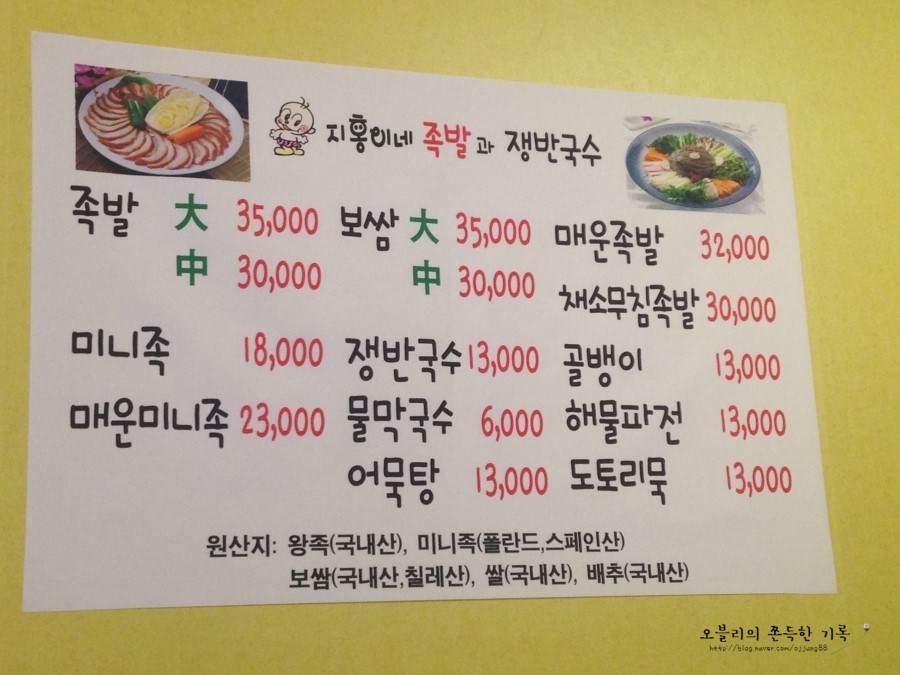 지홍이네 족발과 쟁반국수
족발 大 35,000 보쌈 大 35,000 매운족발 32,000
中 30,000 中 30,000 채소무침족발 30,000
미니족 18,000 쟁반국수 13,000 골뱅이 13,000
매운미니족 23,000 물막국수 6,000 해물파전 13,000
어묵탕 13,000 도토리묵 13,000
원산지: 왕족(국내산), 미니족(폴란드,스페인산)
보쌈(국내산,칠레산), 쌀(국내산), 배추(국내산)
오블리의 쫀득한 기록
http://blog.naver.com/ojjung88